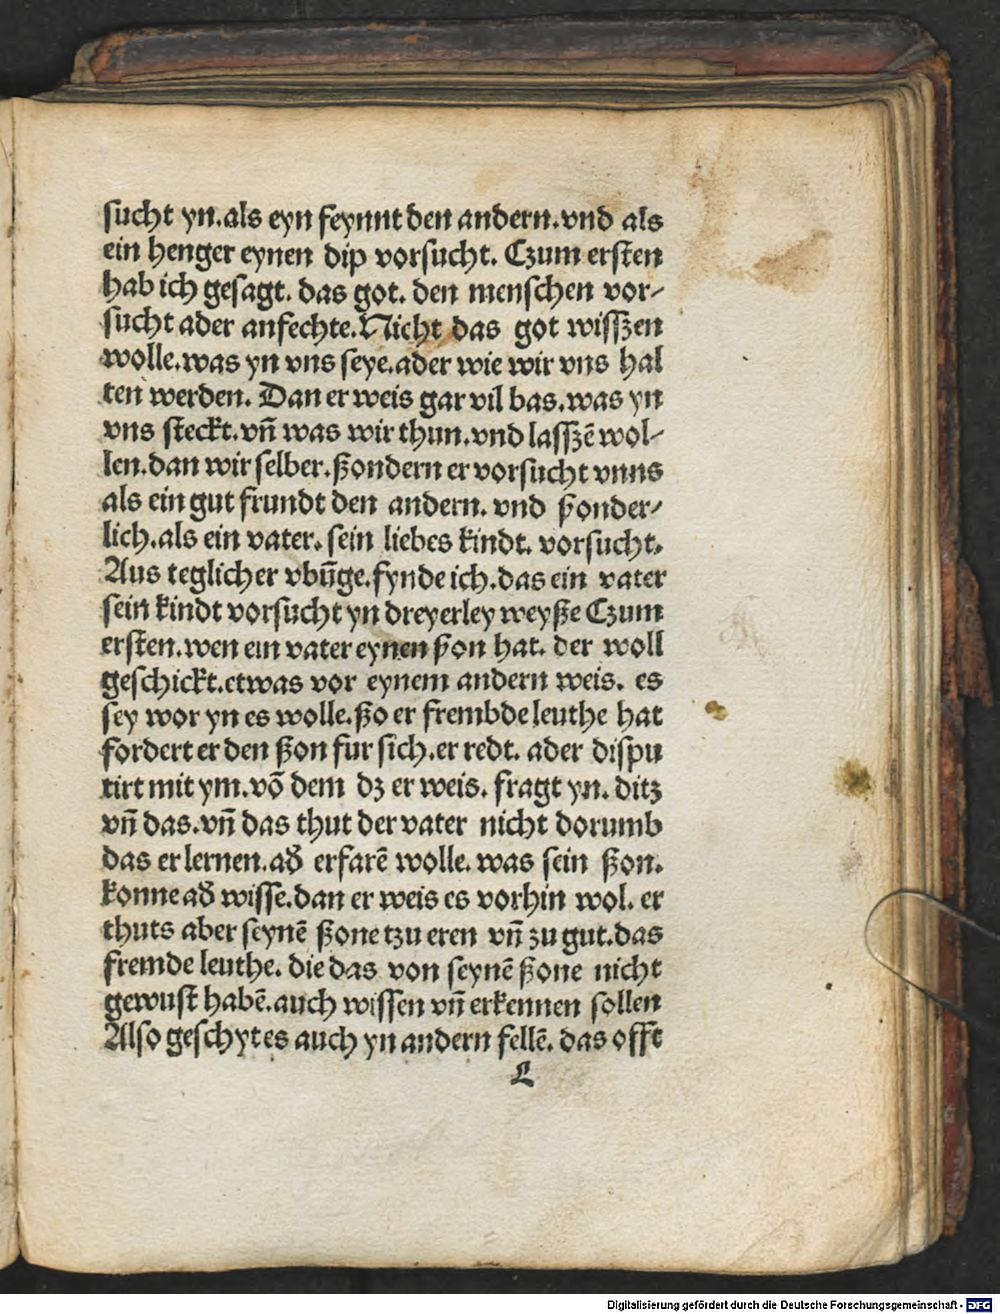 sucht yn.als eyn feynnt den andern.vnd als
ein henger eynen dip vorsucht. Czum ersten
hab ich gesagt. das got. den menschen vor⸗
sucht ader anfechte.Nicht das got wisszen
wolle.was yn vns seye.ader wie wir vns hal
ten werden. Dan er weis gar vil bas.was yn
vns steckt.vñ was wir thun.vnd lasszē wol⸗
len.dan wir selber.ßondern er vorsucht vnns
als ein gut frundt den andern. vnd ßonder⸗
lich.als ein vater. sein liebes kindt. vorsucht.
Aus teglicher vbūge.fynde ich.das ein vater
sein kindt vorsucht yn dreyerley weyße Czum
ersten.wen ein vater eynen ßon hat. der woll
geschickt.etwas vor eynem andern weis. es
sey wor yn es wolle.ßo er frembde leuthe hat
fordert er den ßon fur sich.er redt. ader dispu
tirt mit ym.võ dem dz er weis. fragt yn. ditz
vñ das.vñ das thut der vater nicht dorumb
das er lernen.ađ erfarē wolle. was sein ßon.
konne ađ wisse.dan er weis es vorhin wol. er
thuts aber seynē ßone tzu eren vñ zu gut.das
fremde leuthe. die das von seynē ßone nicht
gewust habē.auch wissen vñ erkennen sollen
Also geschyt es auch yn andern fellē. das offt
L
Digitalisierung gefördert durch die Deutsche Forschungsgemeinschaft - DFG